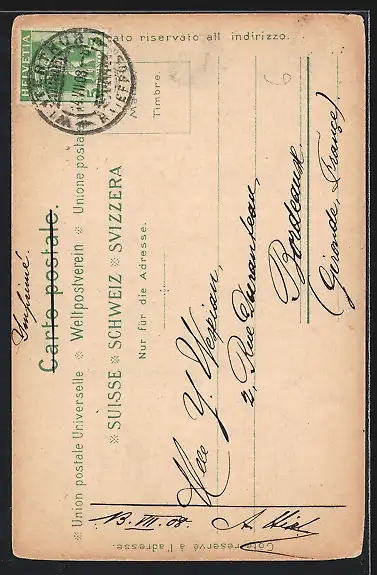 Lato riservato all indirizzo.
HELVETIA
5
WINTERTHUR
BRIEFTR.
Marke.
Timbre.
Imprimé
Carte postale.
※ Union postale Universelle ※ Weltpostverein ※ Unione postale
※ SUISSE ※ SCHWEIZ ※ SVIZZERA
Nur für die Adresse.
Mlle Y.
2, Rue
Bordeaux.
(Gironde, France)
13. VII. 08. A.
Côté réservé à l'adresse.